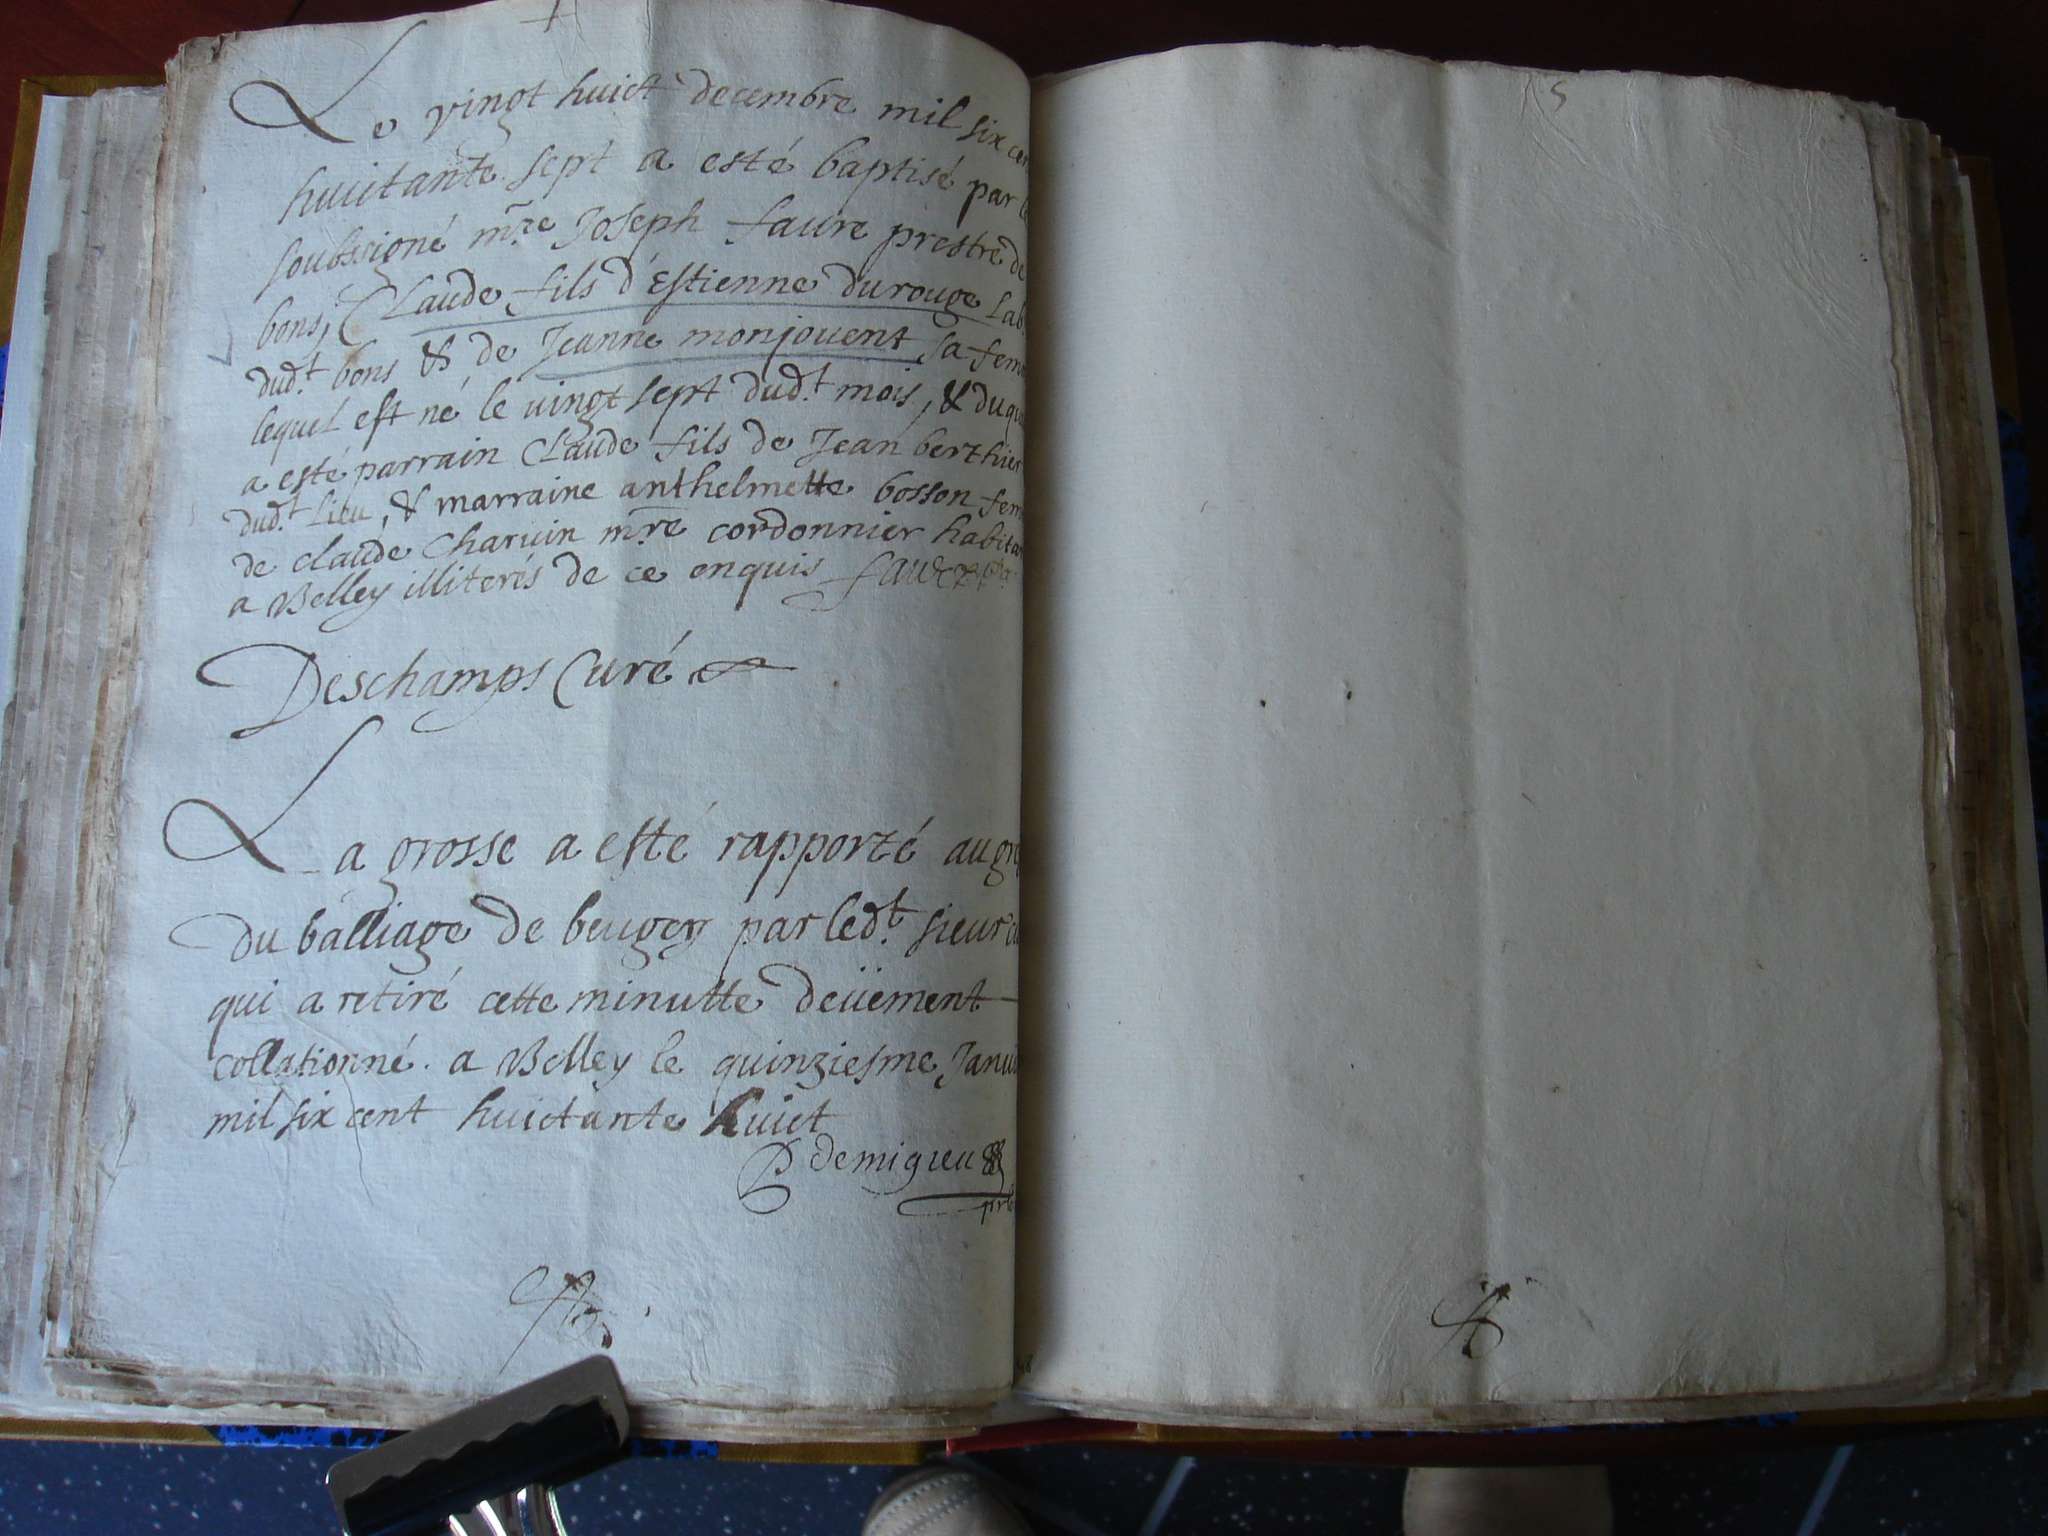 Le vingt huict decembre mil six cen
huictante sept a esté baptisé par le
soubssigné mre Joseph faure prestre de
bons, Claude fils d'Estienne durouge lab.
dud.t bons & de Jeanne monjouent sa fem
lequel est né le vingt sept dud.t mois, & duqu
a esté parrain Claude fils de Jean berthier
dud.t lieu, & marraine anthelmette bosson fem
de claude Charuin mre cordonnier habitan
a Belley illiterés de ce enquis faure
Deschamps Curé
La grosse a esté rapporté au gre
du balliage de beugey par led.t sieur cu
qui a retiré cette minutte deüement
collationné. a Belley le quinziesme Janui
mil six cent huictante huict
P demigieu
5